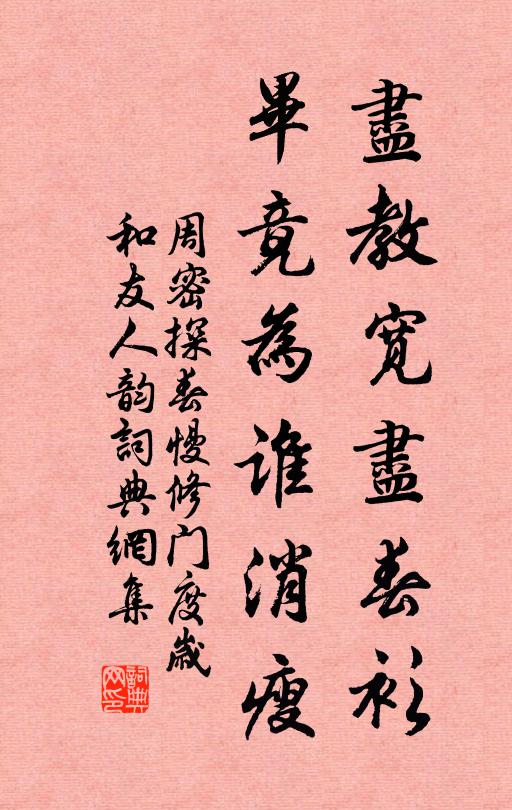 盡教寬盡春衫
畢竟為誰消瘦
周密探春慢修門度歲
和友人韵詞典網集
詞典
网印